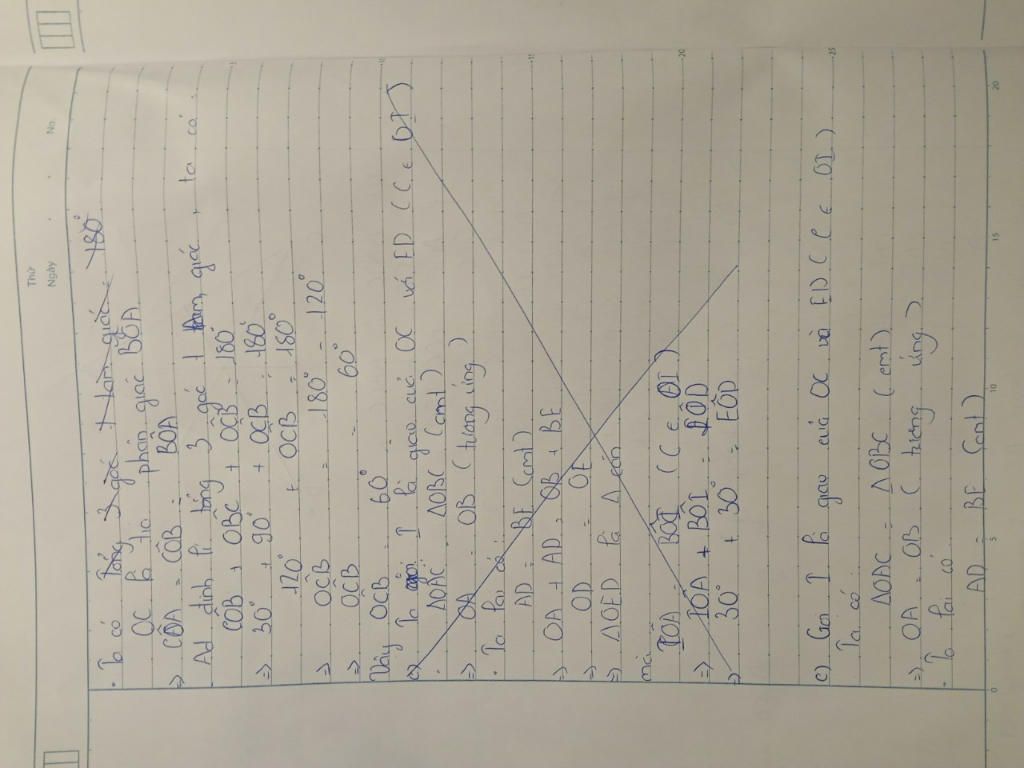 Thứ
Ngày . . No.
• Ta có tổng 3 góc 1 tam giác = 180°
OC là tia phân giác BÔA
=> CÔA = CÔB = BOA
Ad định lí tổng 3 góc 1 tam giác, ta có.
CÔB + OBC + OĈB = 180°
=> 30° + 90° + OĈB = 180°
120° + OCB = 180°
=> OĈB = 180° - 120°
=> OĈB = 60°
Vậy OĈB = 60°
c) Ta gọi I là giao của OC với ED (C ∈ OI)
• ΔOAC = ΔOBC (cmt)
=> OA = OB (tương ứng)
• Ta lại có:
AD = BE (cmt)
=> OA + AD = OB + BE
=> OD = OE
=> ΔOED là Δ cân
mà
IÔA = BÔI (C ∈ OI)
=> IÔA + BÔI = EÔD
=> 30° + 30° = EÔD
c) Gọi I là giao của OC và ED (C ∈ OI)
Ta có
ΔOAC = ΔOBC (cmt)
=> OA = OB (tương ứng)
• Ta lại có
AD = BE (cmt)
0 5 10 15 20
5 10 15 20 25